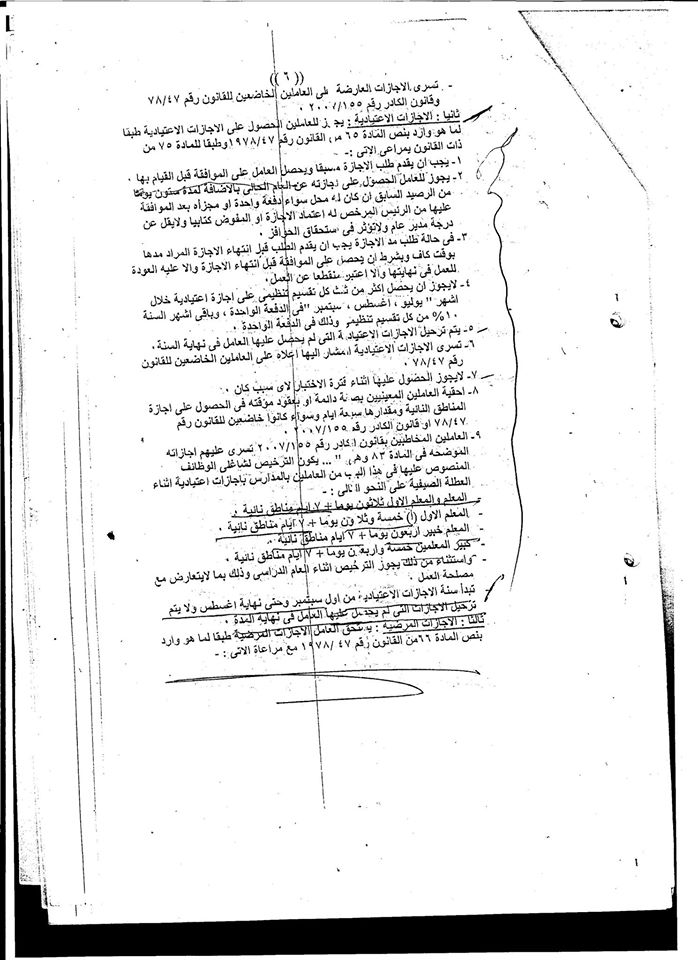 (( ٦ ))
- تسرى الاجازات العارضة على العاملين الخاضعين للقانون رقم ٧٨/٤٧
وقانون الكادر رقم ٢٠٠٧/١٥٥ .
ثانيا : الاجازات الاعتيادية : يجوز للعاملين الحصول على الاجازات الاعتيادية طبقا
لما هو وارد بنص المادة ٦٥ من القانون رقم ١٩٧٨/٤٧ وطبقا للمادة ٧٥ من
ذات القانون يمراعى الاتى :-
١- يجب ان يقدم طلب الاجازة مسبقا ويحصل العامل على الموافقة قبل القيام بها .
٢- يجوز للعامل الحصول على اجازته عن العام الحالى بالاضافة لمدة ستون يوما
من الرصيد السابق ان كان له محل سواء دفعة واحدة او مجزأه بعد الموافقة
عليها من الرئيس المرخص له اعتماد الاجازة او المفوض كتابيا ولايقل عن
درجة مدير عام ولاتؤثر فى استحقاق الحوافز .
٣- فى حالة طلب مد الاجازة يجب ان يقدم الطلب قبل انتهاء الاجازة المراد مدها
بوقت كاف وبشرط ان يحصل على الموافقة قبل انتهاء الاجازة والا عليه العودة
للعمل فى نهايتها والا اعتبر منقطعا عن العمل .
٤- لايجوز ان يحصل اكثر من ثلث كل تقسيم تنظيمى على اجازة اعتيادية خلال
اشهر " يوليو ، اغسطس ، سبتمبر " فى الدفعة الواحدة ، وباقى اشهر السنة
١٠% من كل تقسيم تنظيمى وذلك فى الدفعة الواحدة .
٥- يتم ترحيل الاجازات الاعتيادية التى لم يحصل عليها العامل فى نهاية السنة .
٦- تسرى الاجازات الاعتيادية المشار اليها اعلاه على العاملين الخاضعين للقانون
رقم ٧٨/٤٧ .
٧- لايجوز الحصول عليها اثناء فترة الاختبار لاى سبب كان .
٨- احقية العاملين المعينيين بصفة دائمة او بعقود مؤقته فى الحصول على اجازة
المناطق النائية ومقدارها سبعة ايام وسواء كانوا خاضعين للقانون رقم
٧٨/٤٧ او قانون الكادر رقم ٢٠٠٧/١٥٥ .
٩- العاملين المخاطبين بقانون الكادر رقم ٢٠٠٧/١٥٥ تسرى عليهم اجازاته
الموضحه فى المادة ٨٣ وهى " ... يكون الترخيص لشاغلى الوظائف
المنصوص عليها فى هذا الباب من العاملين بالمدارس باجازات اعتيادية اثناء
العطلة الصيفية على النحو التالى :-
- المعلم والمعلم الاول ثلاثون يوما + ٧ ايام مناطق نائية .
- المعلم الاول (أ) خمسة وثلاثون يوما + ٧ ايام مناطق نائية .
- المعلم خبير اربعون يوما + ٧ ايام مناطق نائية .
- كبير المعلمين خمسة واربعون يوما + ٧ ايام مناطق نائية .
- واستثناء من ذلك يجوز الترخيص اثناء العام الدراسى وذلك بما لايتعارض مع
مصلحة العمل .
تبدأ سنة الاجازات الاعتيادية من اول سبتمبر وحتى نهاية اغسطس ولا يتم
ترحيل الاجازات التى لم يحصل عليها العامل فى نهاية المدة .
ثالثا : الاجازات المرضية : يستحق العامل الاجازات المرضية طبقا لما هو وارد
بنص المادة ٦٦ من القانون رقم ١٩٧٨/٤٧ مع مراعاة الاتى :-